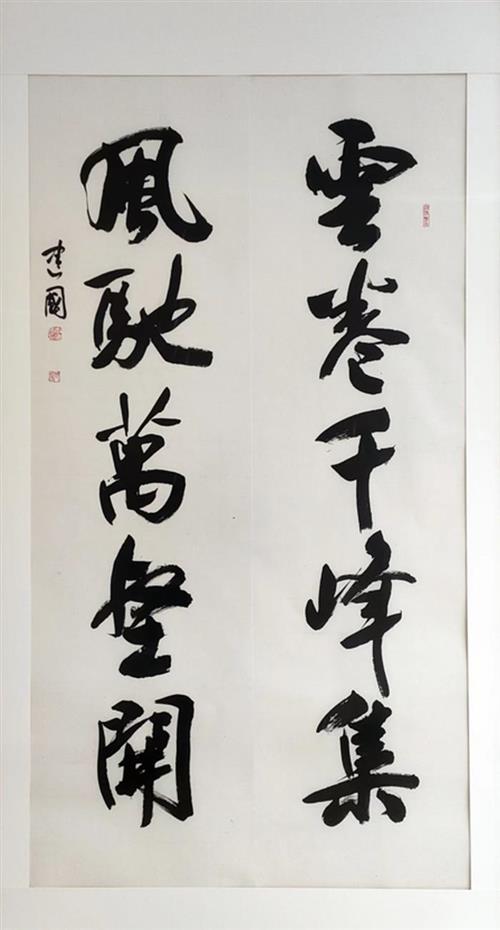 雲卷千峰集
風馳萬壑開
建國